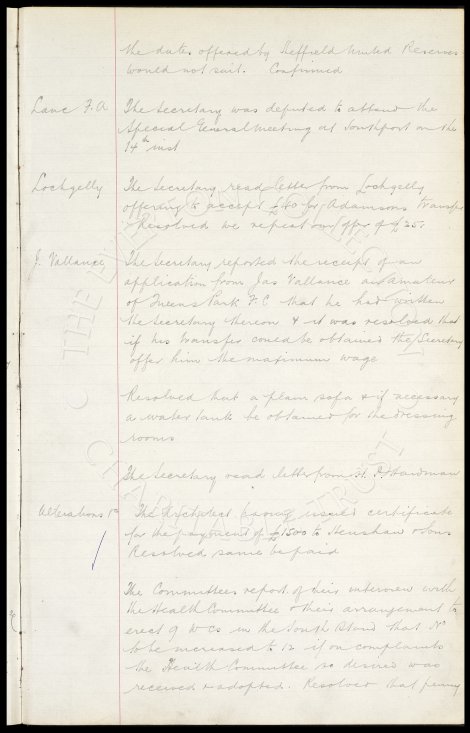 the dates offered by Sheffield United Reserves
would not suit. Confirmed
Lanc F.A
The Secretary was deputed to attend the
Special General Meeting at Southport on the
14th inst
Lochgelly
The Secretary read letter from Lochgelly
offering to accept £40 for Adamsons transfer
Resolved we repeat our offer of £35.
J. Vallance
The Secretary reported the receipt of an
application from Jas Vallance an amateur
of Queens Park F.C that he had written
the Secretary thereon & it was resolved that
if his transfer could be obtained the Secretary
offer him the maximum wage
Resolved that a plain sofa & if necessary
a water tank be obtained for the dressing
rooms
The Secretary read letter from H. P. Hardman
Alterations
The Architect having issued certificate
for the payment of £1500 to Henshaw & Sons
Resolved same be paid
The Committees report of their interview with
the Health Committee & their arrangement to
erect 9 WCs in the South Stand that No
to be increased to 12 if on complaints
the Health Committee so desired was
received & adopted. Resolved that penny